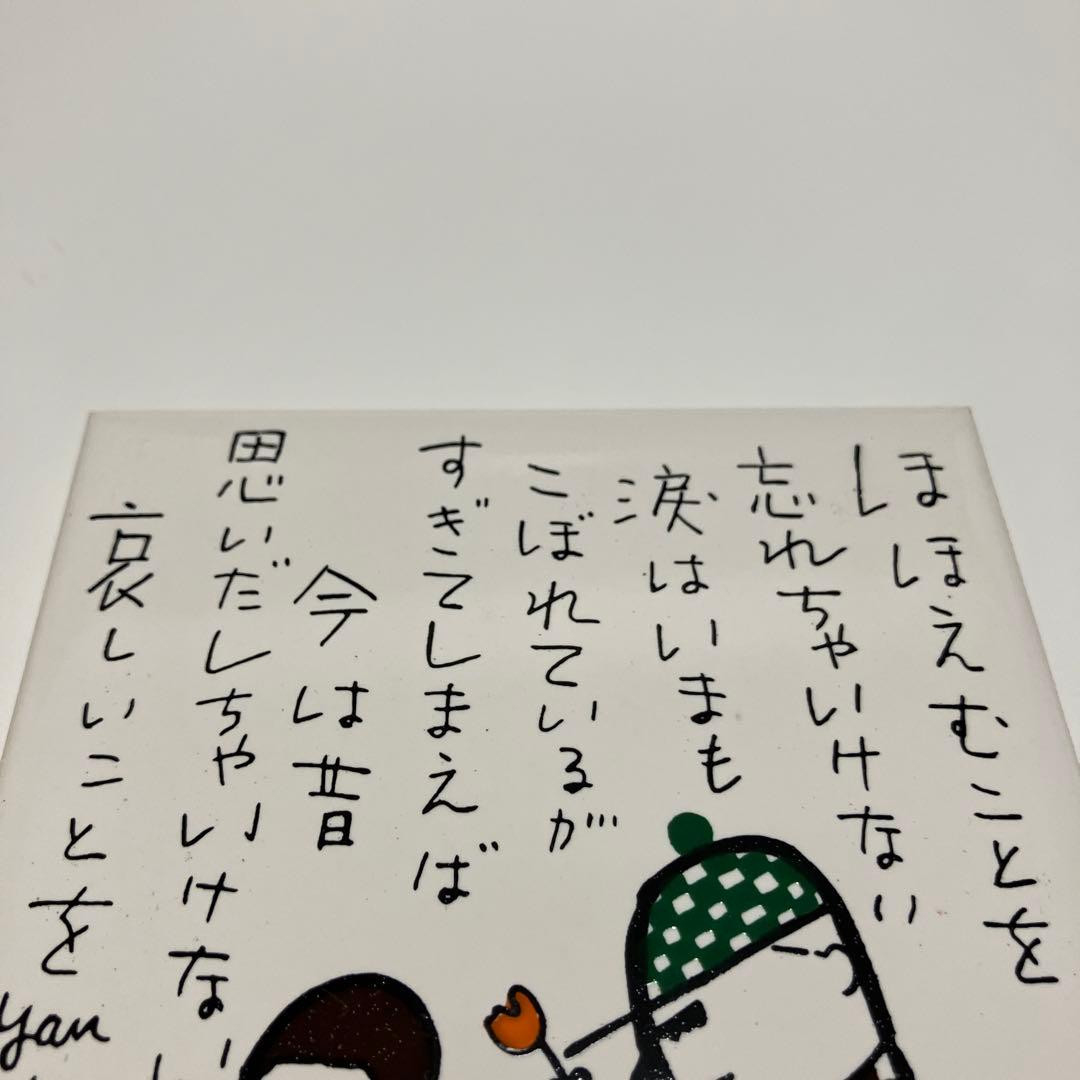 ほほえむことを
忘れちゃいけない
涙はいまも
こぼれているが
すぎてしまえば
今は昔
思いだしちゃいけない
哀しいことを
yan